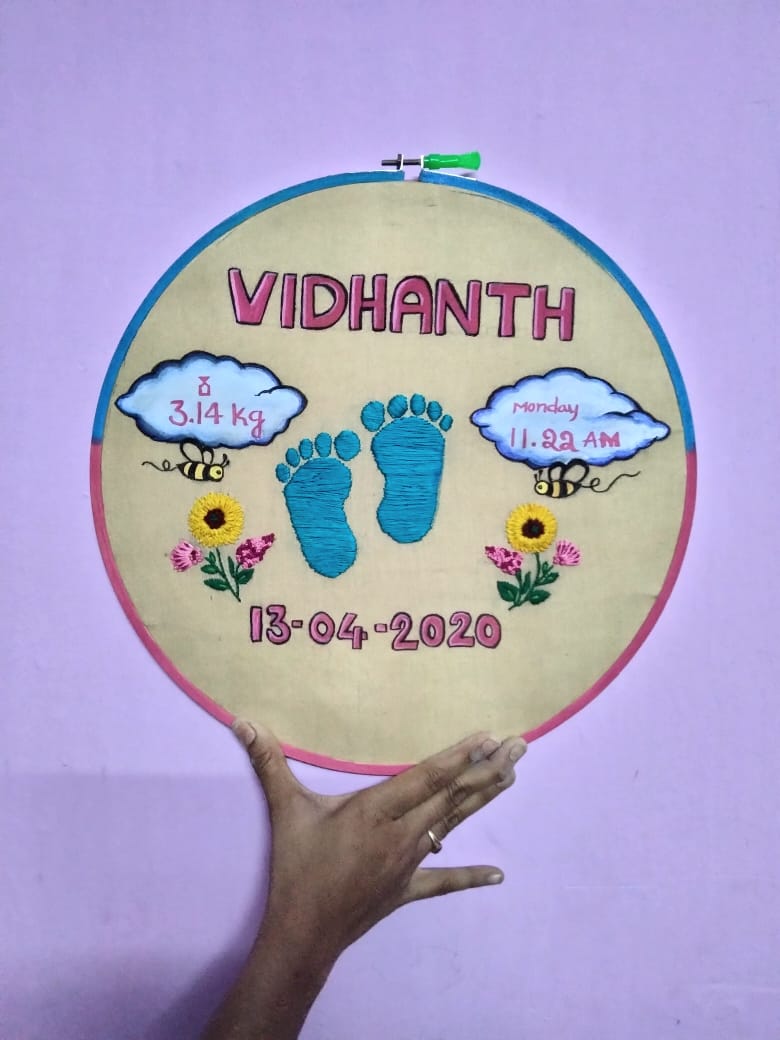 VIDHANTH
3.14 kg
Monday
11.22 AM
13-04-2020